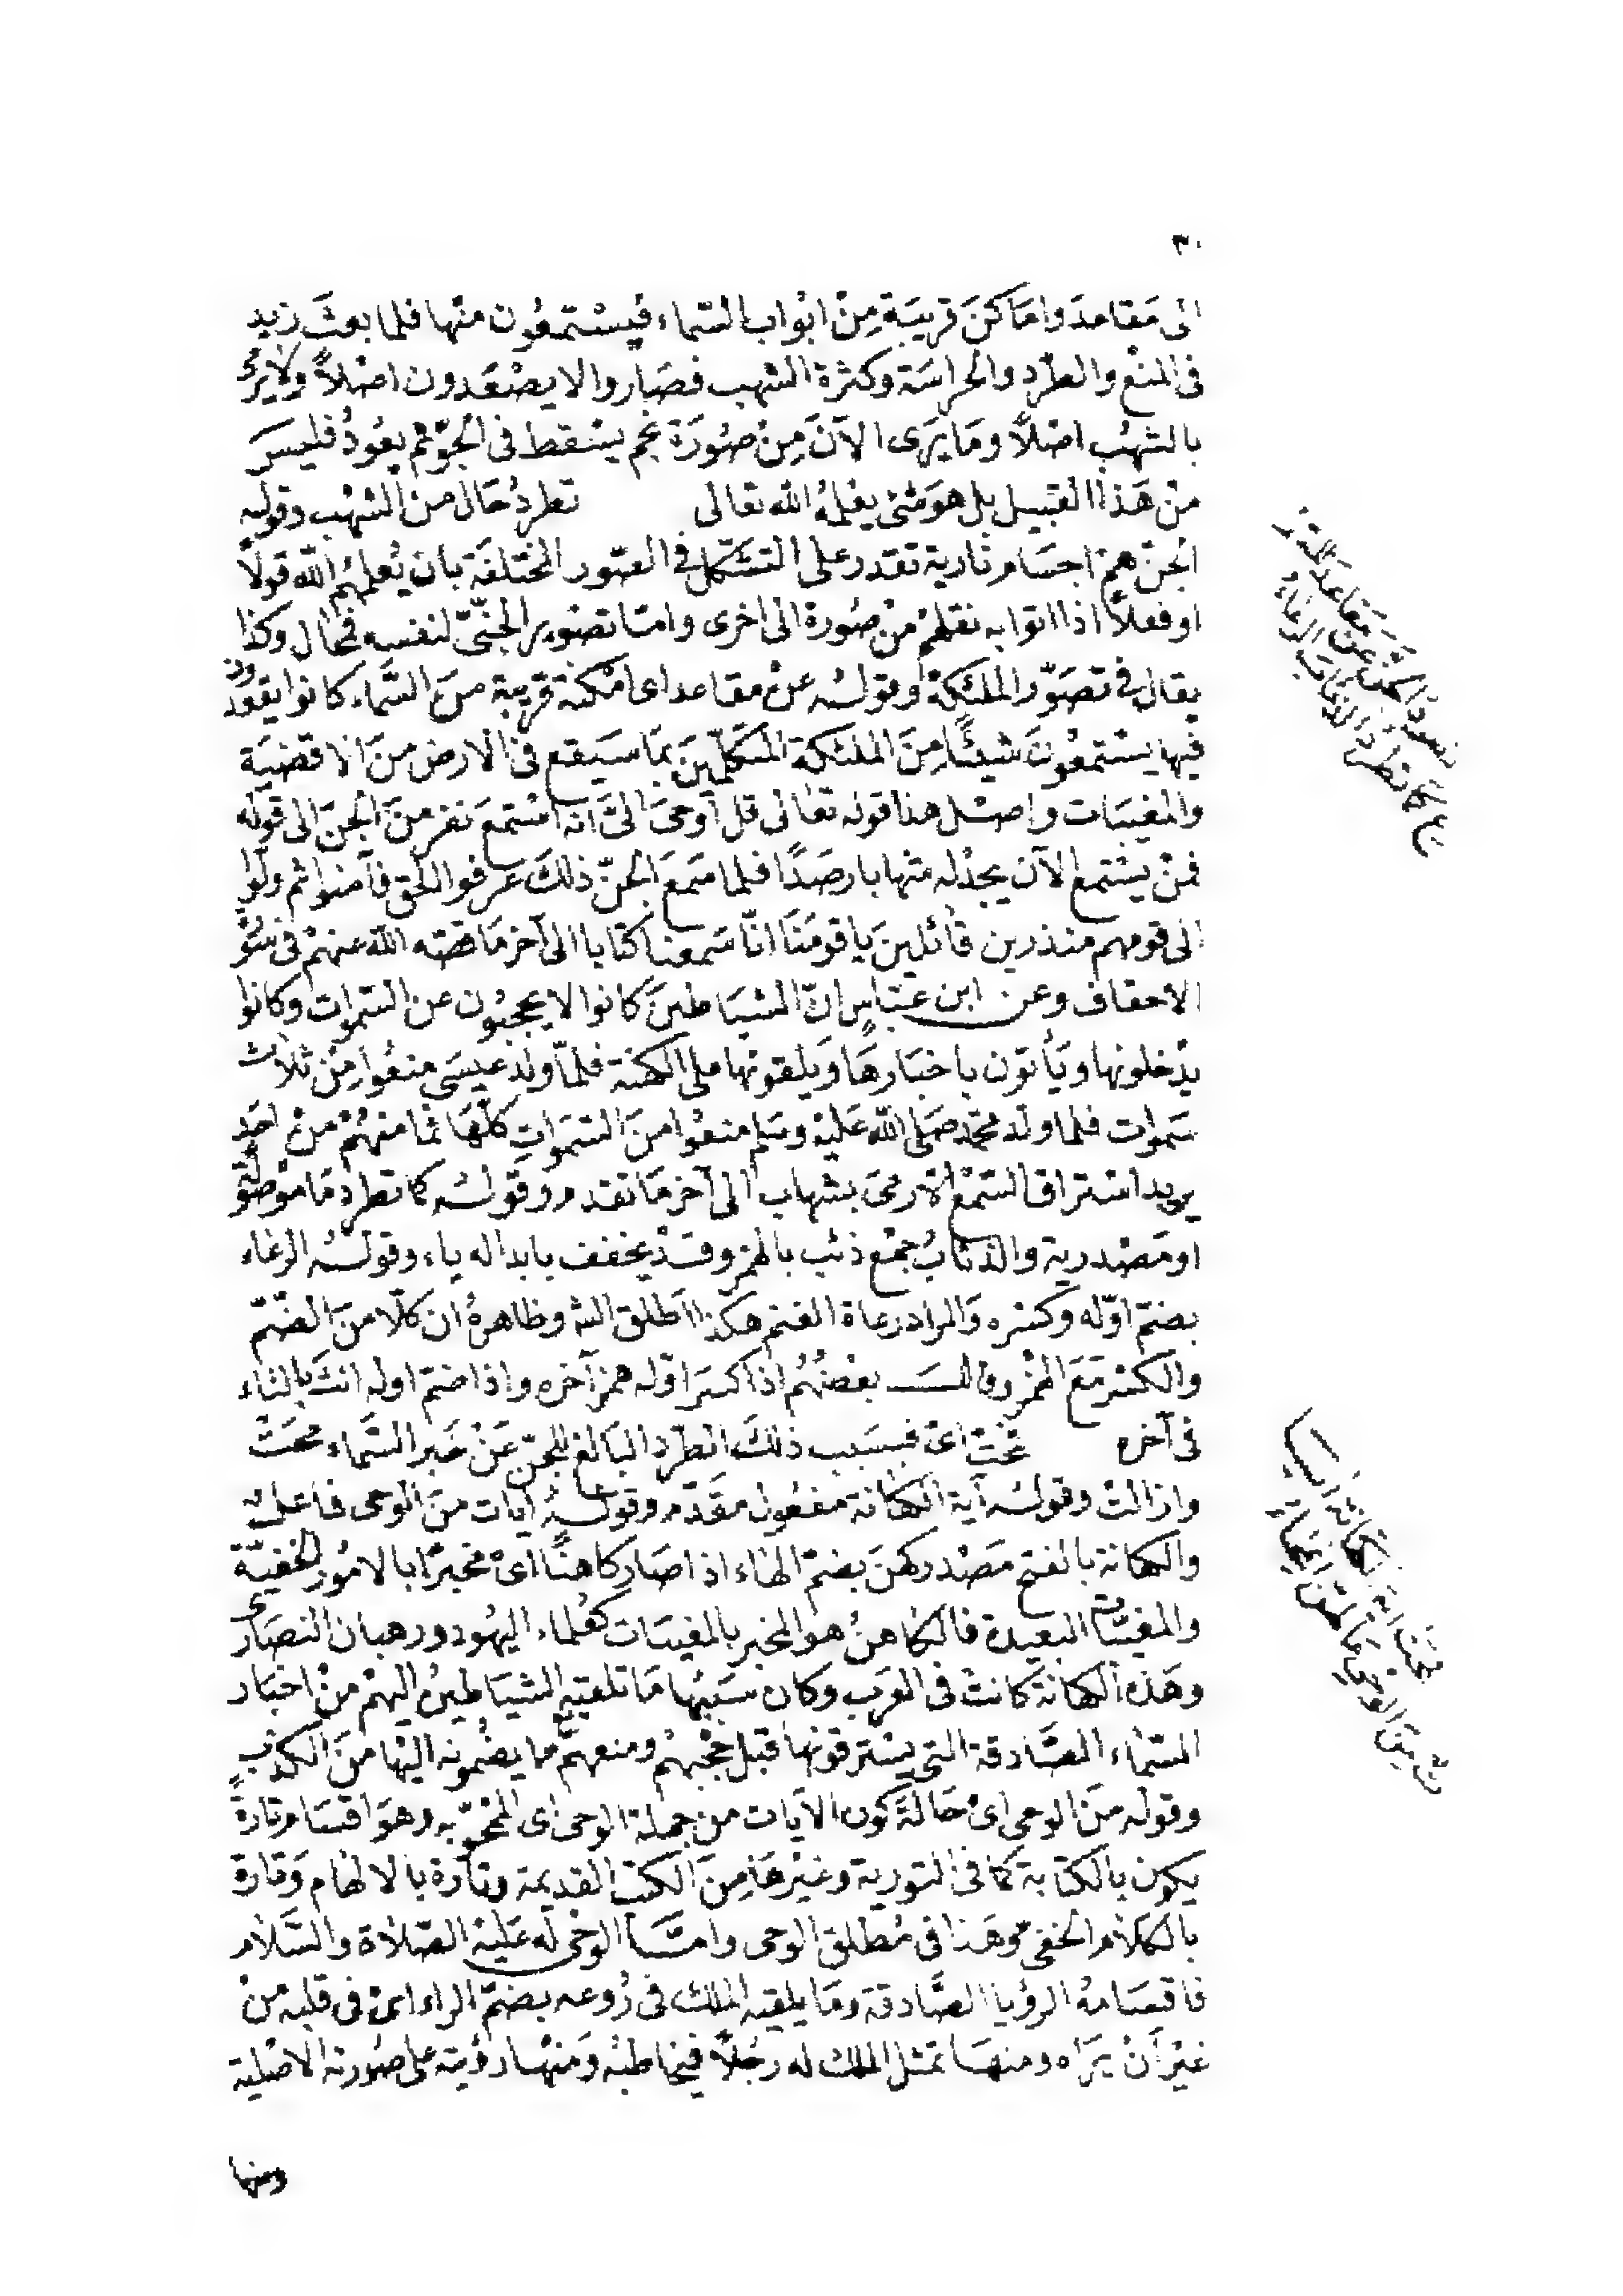 ٣٠
الى مَقاعدَ واماكنَ قريبَة مِنْ ابْوَاب السّماء فيَسْتمعُون منْها فلما بعثَ زيد
فى المنْع والطّرْد والحراسَة وكثرة الشهب فصَاروا لا يصْعَدون اصْلاً ولا يرْمى
بالشهُب اصْلاً ومَا يرَى الآنَ مِنْ صُورَة نجم يسْقط فى الجوّ ثم يعُودُ فليسَ
منْ هَذا القبيل بل هوَ شئ يعْلمهُ الله تعالى تطردُ حَال من الشهْب وقوله
الجنّ هم اجسَام نارية تقدر على التشكل فى الصّور المختلفَة بان يُعلمهُم الله قولاً
او فعلاً اذا اتوا به نقلهُمْ منْ صُورة الى اخرى وامّا تصْوير الجنّىّ لنفسه فمحال وكذا
يقال فى تصَوّر الملئكة وقولـه عنْ مقاعد اى امْكنة قريبة منَ السَّماء كانوا يقعدُون
فيها يسْتمعُونَ شيئًا مِنَ الملئكة المتكلّمينَ بمَا سَيَقع فى الارض منَ الاقضيَة
والمغيبَات واصْل هذا قوله تعالى قل اوحىَ الىَّ انه اسْتمعَ نفر منَ الجنّ الى قوله
فمنْ يسْتمع الآن يجدْ له شهابا رصَدًا فلما سَمع الجنّ ذلكَ عرفوا الحق فآمنوا ثم ولّوا
الى قومهم منذرين قائلينَ يا قومَنَا انّا سَمعنا كتابا الى آخر مَا قصّه الله عنهمْ فى سُوْرة
الاحقاف وعن ابن عبّاسٍ انّ الشيَاطينَ كانوا لا يحجبُون عن السّمٰوات وكانوا
يدْخلونها ويَأتون باخبَارهَا ويَلقونها على الكهنة فلمّا ولدَ عيسَى منعُوا مِنْ ثلاث
سَمٰوات فلما ولد محمّد صَلى الله عَليْه وسَلم منعُوا منَ السّمَوات كلّهَا فما منهُمْ منْ احَد
يريد استراق السّمْع الا رمىَ بشهاب الى آخر مَا تقدم وقولـه كما تطرد مَا موْصُولة
او مَصْدرية والذئابُ جمْع ذئب بالهمز وقدْ يخفف بابداله ياء وقولـه الرعَاء
بضمّ اوّله وكسْره وَالمراد رعاة الغنم هكذا اطلق الشـ وظاهرهُ ان كلّا منَ الضّمّ
والكسْر مَعَ الهمْز وقالـــ بعْضهُم اذا كسرَ اوّله همز آخره واذا ضمّ اوله انثَ بالتاء
فى آخره محَتْ اىْ فبسَبب ذلكَ الطرْد البَالغ للجنّ عَنْ خبر السَّماء محَتْ
وازالتْ وقولـه آية الكهَانة مفعُول مقدّم وقولـه آيات منَ الوحى فاعلـه
والكهانة بالفتح مَصْدر كهنَ بضمّ الهَاء اذا صَار كاهنًا اىْ مخبرًا بالامُور الخفيّة
والمغيبات البَعيدة فالكاهنُ هوَ المخبر بالمغيبَات كعُلماء اليهُود ورهبان النصَارى
وهَذه الكهانة كانتْ فى العَرب وكان سَببُها مَا تلقيه الشيَاطينُ اليهمْ منْ اخبَار
السّمَاء الصَّادقة التى يسْترقونها قبل حجْبهمْ ومنعهمْ مع ما يضُمونه اليْها منَ الكذب
وقوله منَ الوحى اىْ حَالةَ كون الآيات من جملة الوحى اى الممْحوّ به وهوَ اقسَام تارةً
يكون بالكتابة كمَا فى التورية وغيْرهَا مِنَ الكتب القديمة وتارَة بالالهَام وَتارة
بالكلَام الخفى وهَذا فى مُطلق الوحى وامـَّــا الوحْى له عَليْه الصّلَاة والسَّلَام
فاقسَامهُ الرؤيا الصَّادقة ومَا يلقيه الملك فى رُوعه بضمّ الراء اىْ فى قلبه منْ
غيْر أنْ يَرَاه ومنهَا تمثل الملك له رَجُلاً فيخاطبهُ وَمنْها رؤيته على صُورته الاصْلية
ومنها
تطرد الجنّ عن مقاعد للسمـ
ع كما تطرد الذئابَ الرعاءُ
فمحَت آية الكهانة آيـــا
تٌ منَ الوحْى مَا لهنّ انمحَاءُ